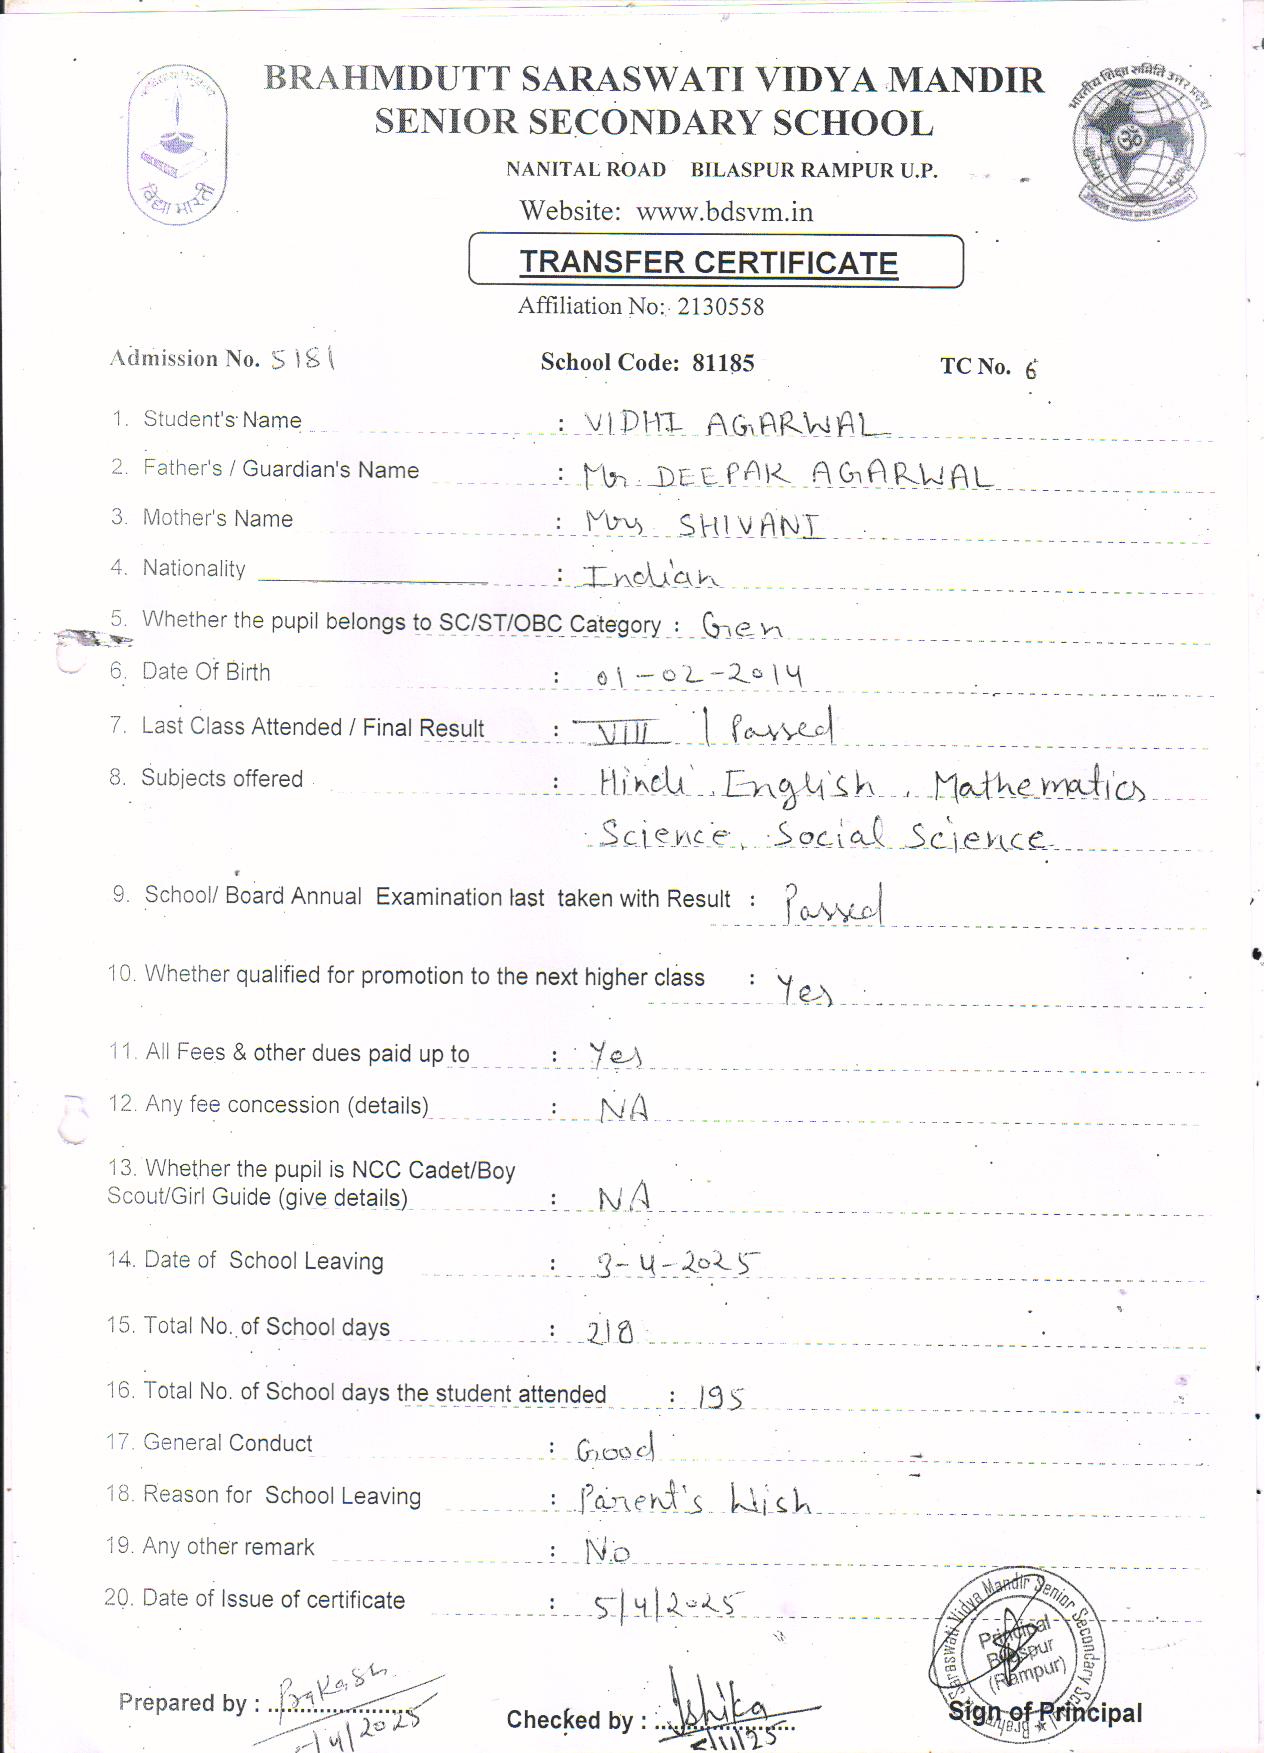 BRAHMDUTT SARASWATI VIDYA MANDIR
SENIOR SECONDARY SCHOOL
NANITAL ROAD BILASPUR RAMPUR U.P.
विद्या भारती
Website: www.bdsvm.in
TRANSFER CERTIFICATE
Affiliation No: 2130558
Admission No. 5181 School Code: 81185 TC No. 6
1. Student's Name : VIDHI AGARWAL
2. Father's / Guardian's Name : Mr. DEEPAK AGARWAL
3. Mother's Name : Mrs SHIVANI
4. Nationality : Indian
5. Whether the pupil belongs to SC/ST/OBC Category : Gen
6. Date Of Birth : 01-02-2014
7. Last Class Attended / Final Result : VIII | Passed
8. Subjects offered : Hindi, English, Mathematics
Science, Social Science
9. School/ Board Annual Examination last taken with Result : Passed
10. Whether qualified for promotion to the next higher class : Yes
11. All Fees & other dues paid up to : Yes
12. Any fee concession (details) : NA
13. Whether the pupil is NCC Cadet/Boy
Scout/Girl Guide (give details) : NA
14. Date of School Leaving : 3-4-2025
15. Total No. of School days : 218
16. Total No. of School days the student attended : 195
17. General Conduct : Good
18. Reason for School Leaving : Parent's Wish
19. Any other remark : No
20. Date of Issue of certificate : 5/4/2025
Principal
Bilaspur
(Rampur)
Prepared by : Checked by : Ishika Sign of Principal